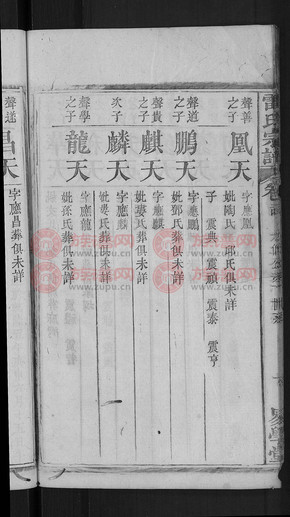 雷氏宗譜
聲善之子
鳳天
字應鳳
妣陶氏 邱氏俱未詳
子 震典 震頑 震泰 震亨
聲道之子
鵬天
字應鵬
妣鄧氏葬俱未詳
聲貴之子
麒天
字應麒
妣婁氏葬俱未詳
次子
麟天
字應麟
妣婁氏葬俱未詳
聲學之子
龍天
字應龍
妣孫氏葬俱未詳
聲道
昌天
字應昌葬俱未詳